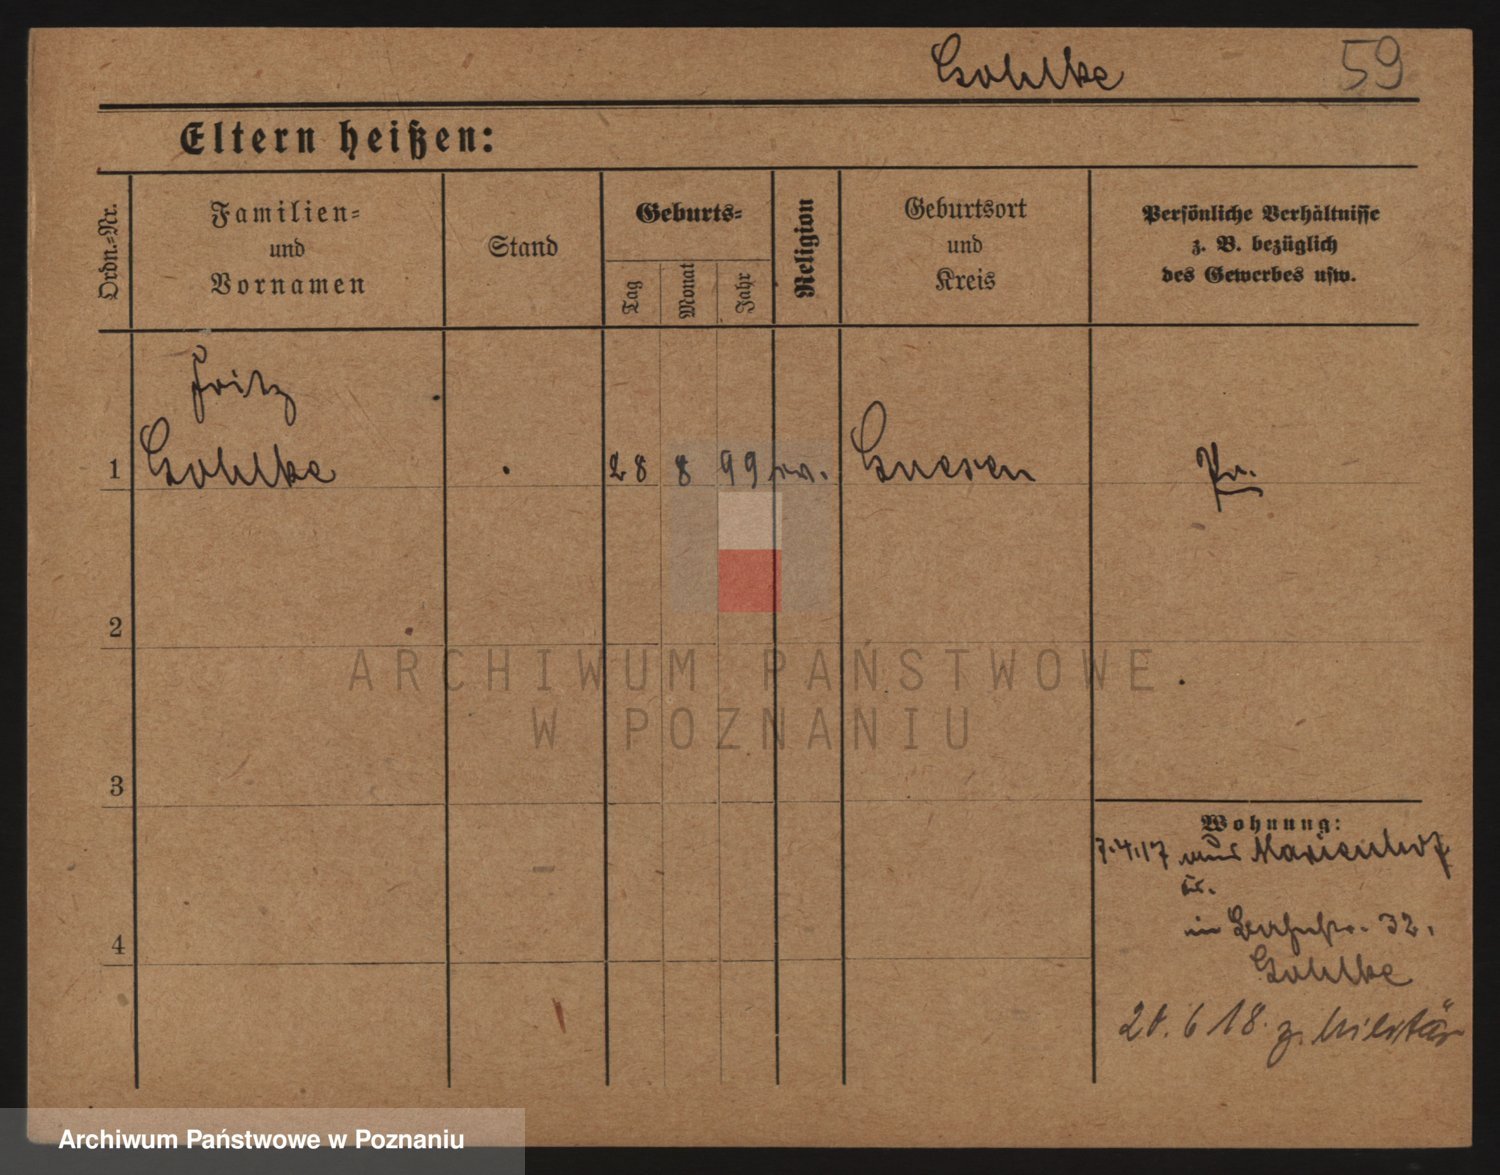 Gohlke 59
Eltern heißen:
Ordn.=Nr.
Familien=
und
Vornamen
Stand
Geburts=
Tag
Monat
Jahr
Religion
Geburtsort
und
Kreis
Persönliche Verhältnisse
z. B. bezüglich
des Gewerbes usw.
Fritz
1 Gohlke 28 8 99 Gnesen Pr.
2
3
4
Wohnung:
7.4.17 aus Marienhof
in 32.
Gohlke
20.6 18. z. Militär
ARCHIWUM PAŃSTWOWE
W POZNANIU
Archiwum Państwowe w Poznaniu